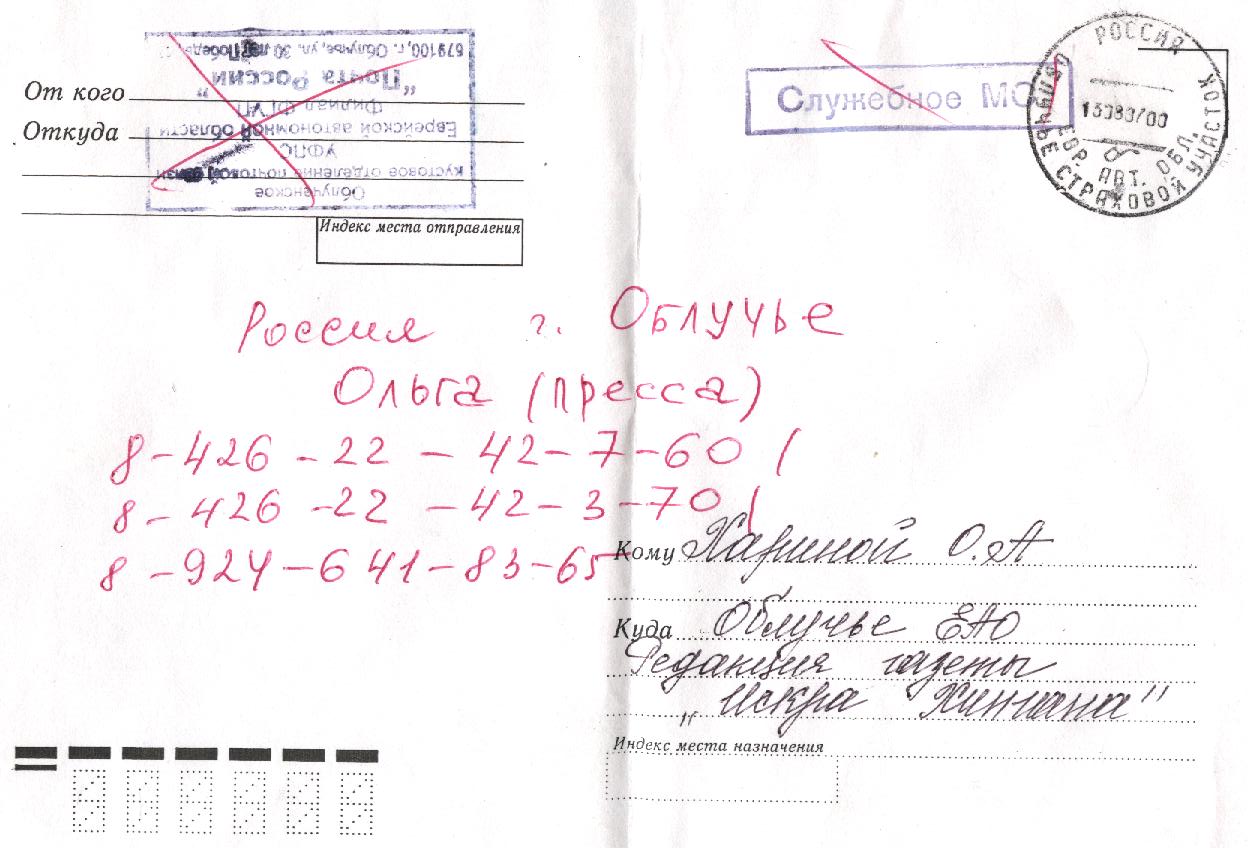 От кого
Откуда
Облученское
кустовое отделение почтовой связи
УФПС
Еврейской автономной области
Филиал ФГУП
"Почта России"
679100, г. Облучье, ул. 30 лет Победы,
Индекс места отправления
Служебное МС
РОССИЯ
ОБЛУЧЬЕ СТРАХОВОЙ УЧАСТОК
ЕВР. АВТ. ОБЛ.
Россия г. Облучье
Ольга (пресса)
8-426-22-42-7-60
8-426-22-42-3-70
8-924-641-83-65
Кому Хариной О.А
Куда Облучье ЕАО
Редакция газеты
„Искра Хингана"
Индекс места назначения